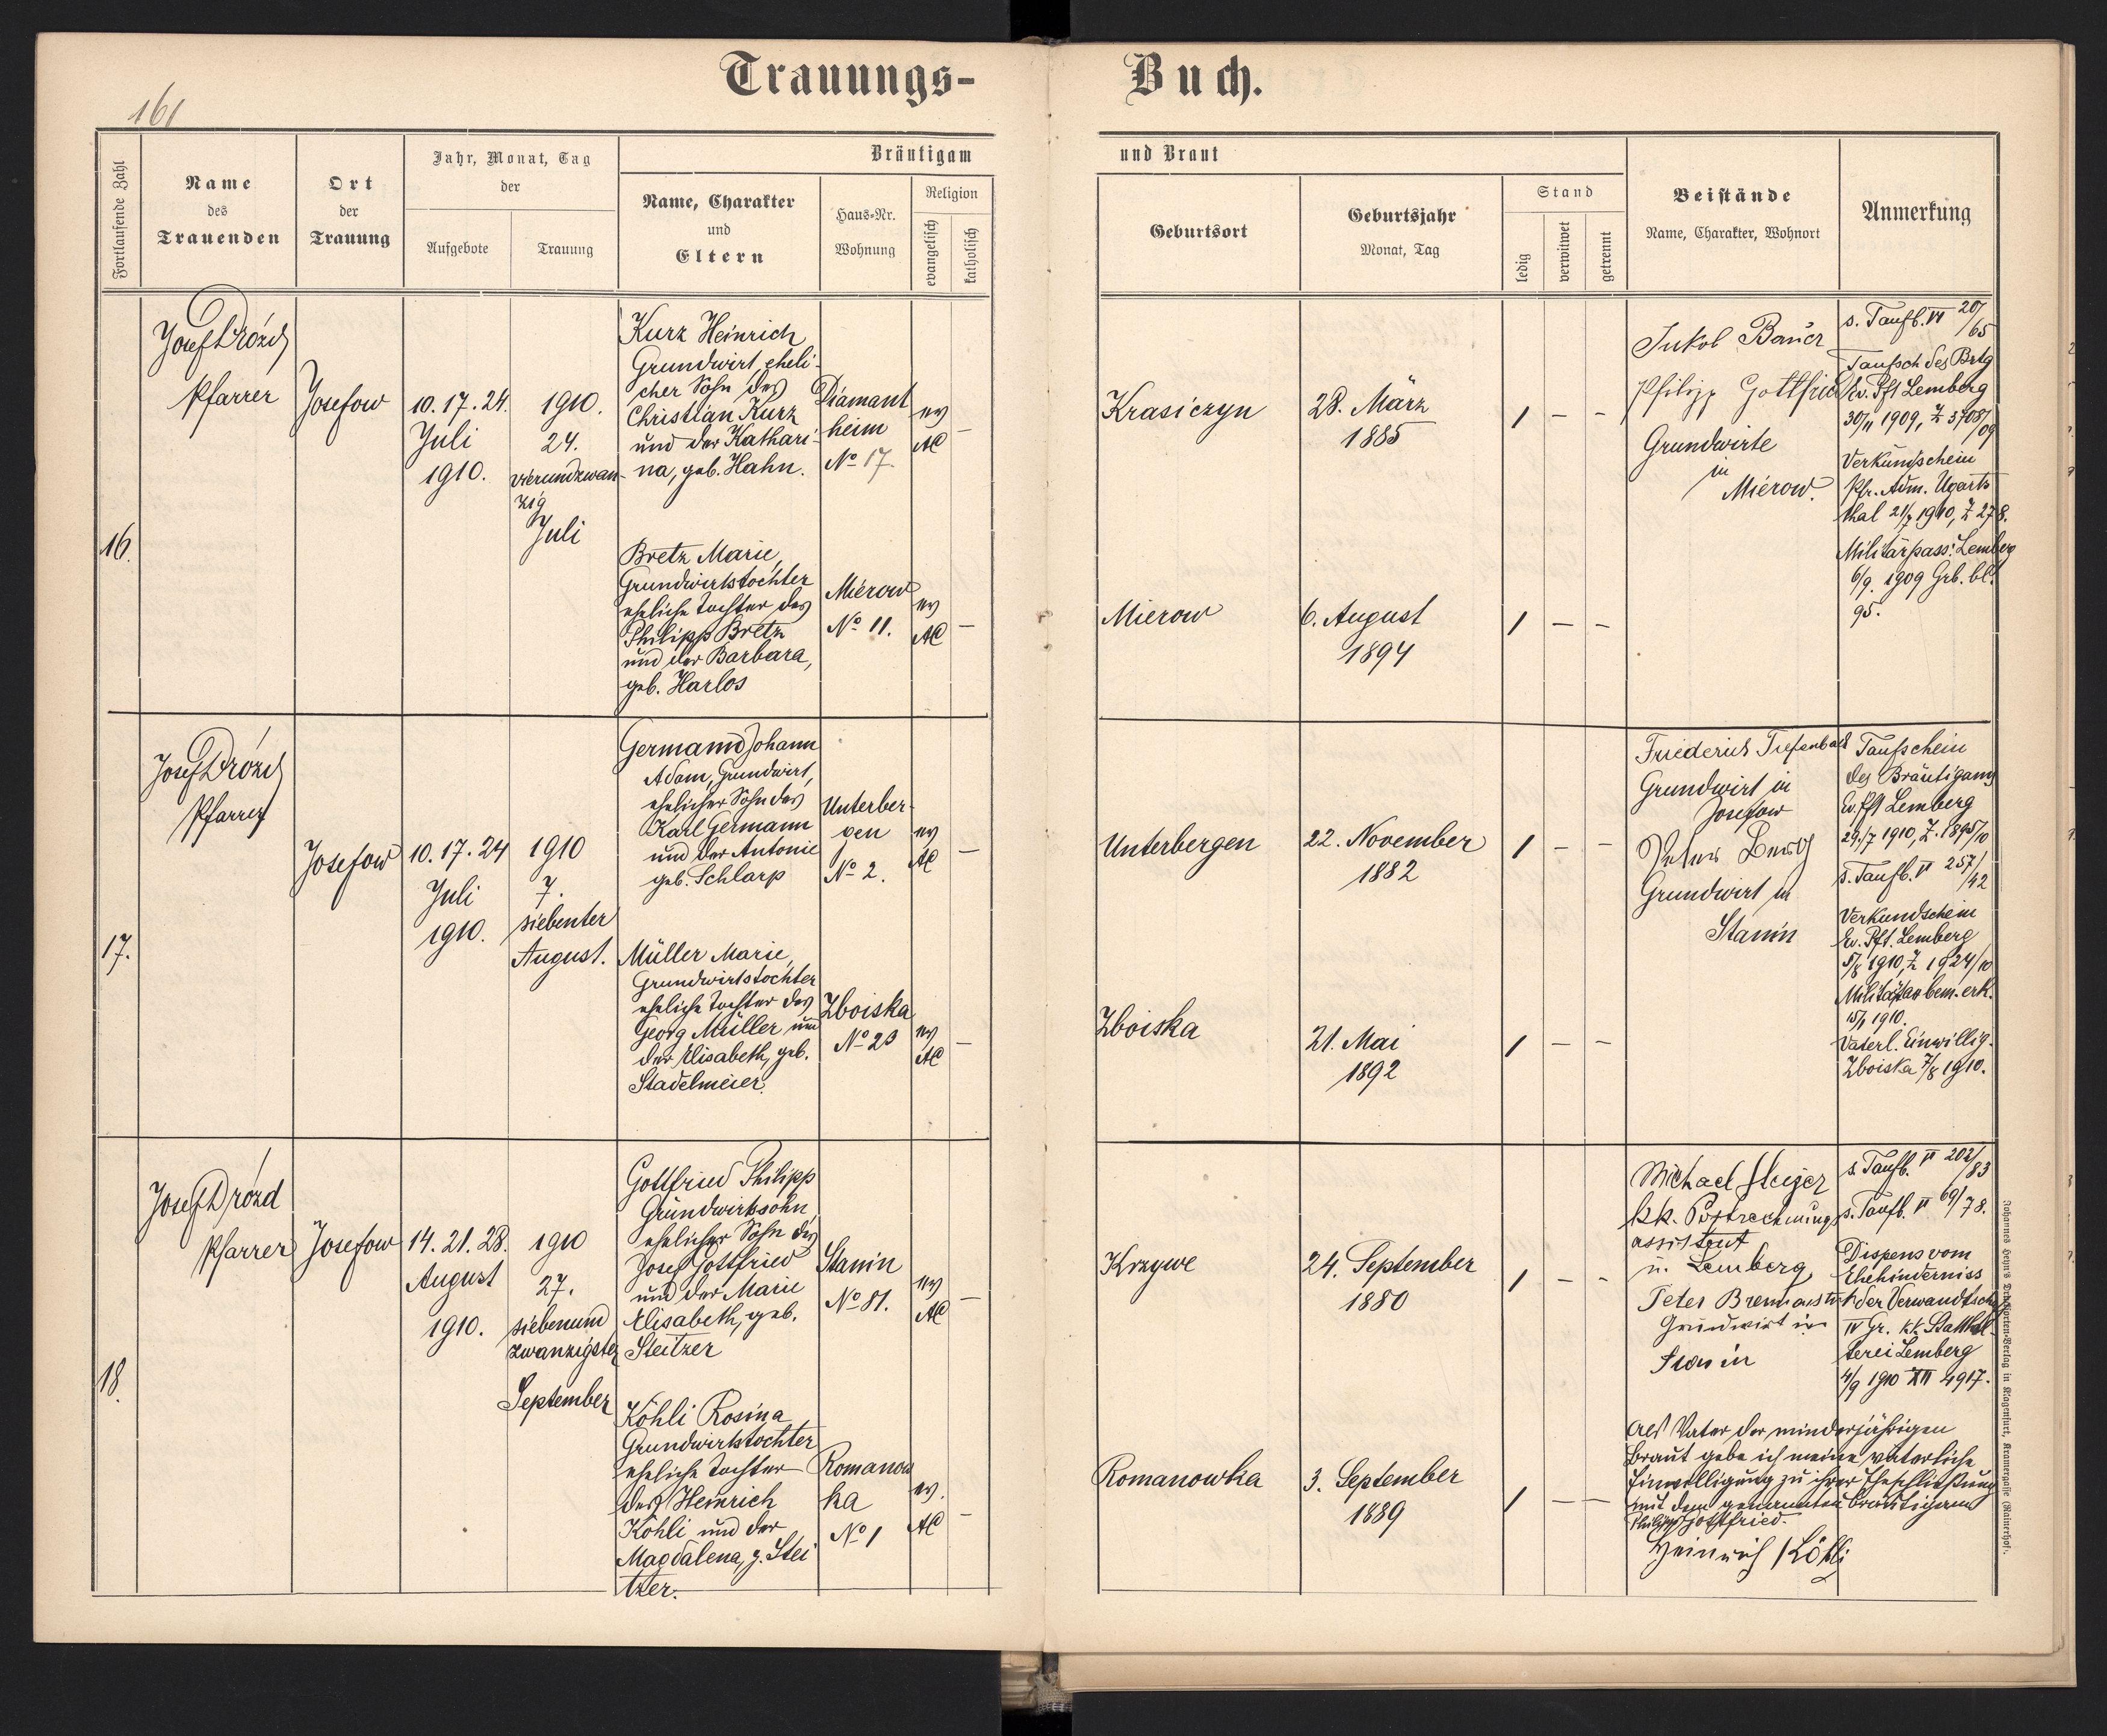 Trauungs-
Buch.
161
Fortlaufende Zahl
Name
des
Trauenden
Ort
der
Trauung
Jahr, Monat, Tag
der
Aufgebote
Trauung
Bräutigam
Name, Charakter
und
Eltern
Haus-Nr.
Wohnung
Religion
evangelisch
katholisch
und Braut
Geburtsort
Geburtsjahr
Monat, Tag
Stand
ledig
verwitwet
getrennt
Beistände
Name, Charakter, Wohnort
Anmerkung
16.
Josef Drózd
Pfarrer
Josefow
10. 17. 24.
Juli
1910.
1910.
24.
vierundzwan-
zig
Juli
Kurz Heinrich
Grundwirt, eheli-
cher Sohn des
Christian Kurz
und der Kathari-
na, geb. Hahn.
Diamant
heim
No 17.
ev
AC
—
Krasiczyn
28. März
1885
1 – –
Bretz Marie,
Grundwirtstochter
eheliche Tochter des
Philipp Bretz
und der Barbara,
geb. Harlos
Mierow
No 11.
ev
AC
—
Mierow
6. August
1894
1 – –
Jakob Bauer
Philipp Gottfried
Grundwirte
in
Mierow.
s. Taufb. VI 20/65
Taufsch des Brtg
Ev. Pft Lemberg
30/11 1909, Z 3708/09
Verkundschein
Pfr. Adm. Ugarts
thal 21/7 1910, Z 278.
Militärpass: Lemberg
6/9. 1909 Grb. bl.
95.
17.
Josef Drózd
Pfarrer
Josefow
10. 17. 24
Juli
1910.
1910
7.
siebenter
August.
Germann Johann
Adam, Grundwirt,
ehelicher Sohn des
Karl Germann
und der Antonie
geb. Schlarp
Unterber-
gen
No 2.
ev
AC
—
Unterbergen
22. November
1882
1 – –
Müller Marie,
Grundwirtstochter
eheliche Tochter des
Georg Müller und
der Elisabeth, geb.
Stadelmeier.
Zboiska
No 23
ev
AC
—
Zboiska
21. Mai
1892
1 – –
Friederich Tiefenbach
Grundwirt in
Josefow
Peter
Grundwirt in
Stanin
Taufschein
des Bräutigams
Ev. Pft Lemberg
29/7 1910, Z. 1895/10
s. Taufb. VI 257/42
Verkundschein
Ev. Pft. Lemberg
5/8 1910, Z 1924/10
1910.
Vaterl. Einwillig.
Zboiska 7/8 1910.
18.
Josef Drózd
Pfarrer
Josefow
14. 21. 28.
August
1910.
1910
27.
siebenund
zwanzigster
September
Gottfried Philipp
Grundwirtssohn,
ehelicher Sohn des
Josef Gottfried
und der Marie
Elisabeth, geb.
Steitzer
Stanin
No 81.
ev
AC
—
Krzywe
24. September
1880
1 – –
Köhli Rosina
Grundwirtstochter
eheliche Tochter
des Heinrich
Köhli und der
Magdalena, g. Stei
tzer.
Romanow
ka
No 1
ev.
AC
–
Romanowka
3. September
1889
1 – –
Michael
kk. Postrechnungs
assistent
in Lemberg,
Peter
Grundwirt in
Stanin
s. Taufb. VI 202/83
s. Taufb. VI 69/78.
Dispens vom
Ehehinderniss
der Verwandtsch
IV Gr. kk Statthal-
terei Lemberg
4/9 1910 XIII 4917.
Als Vater der minderjährigen
Braut gebe ich meine väterliche
Einwilligung zu ihrer Eheschließung
mit dem genannten Bräutigam
Philipp Gottfried.
Heinrich Köhli
Johannes Heyn's Drucksorten-Verlag in Klagenfurt, Kramergasse (Rainerhof).